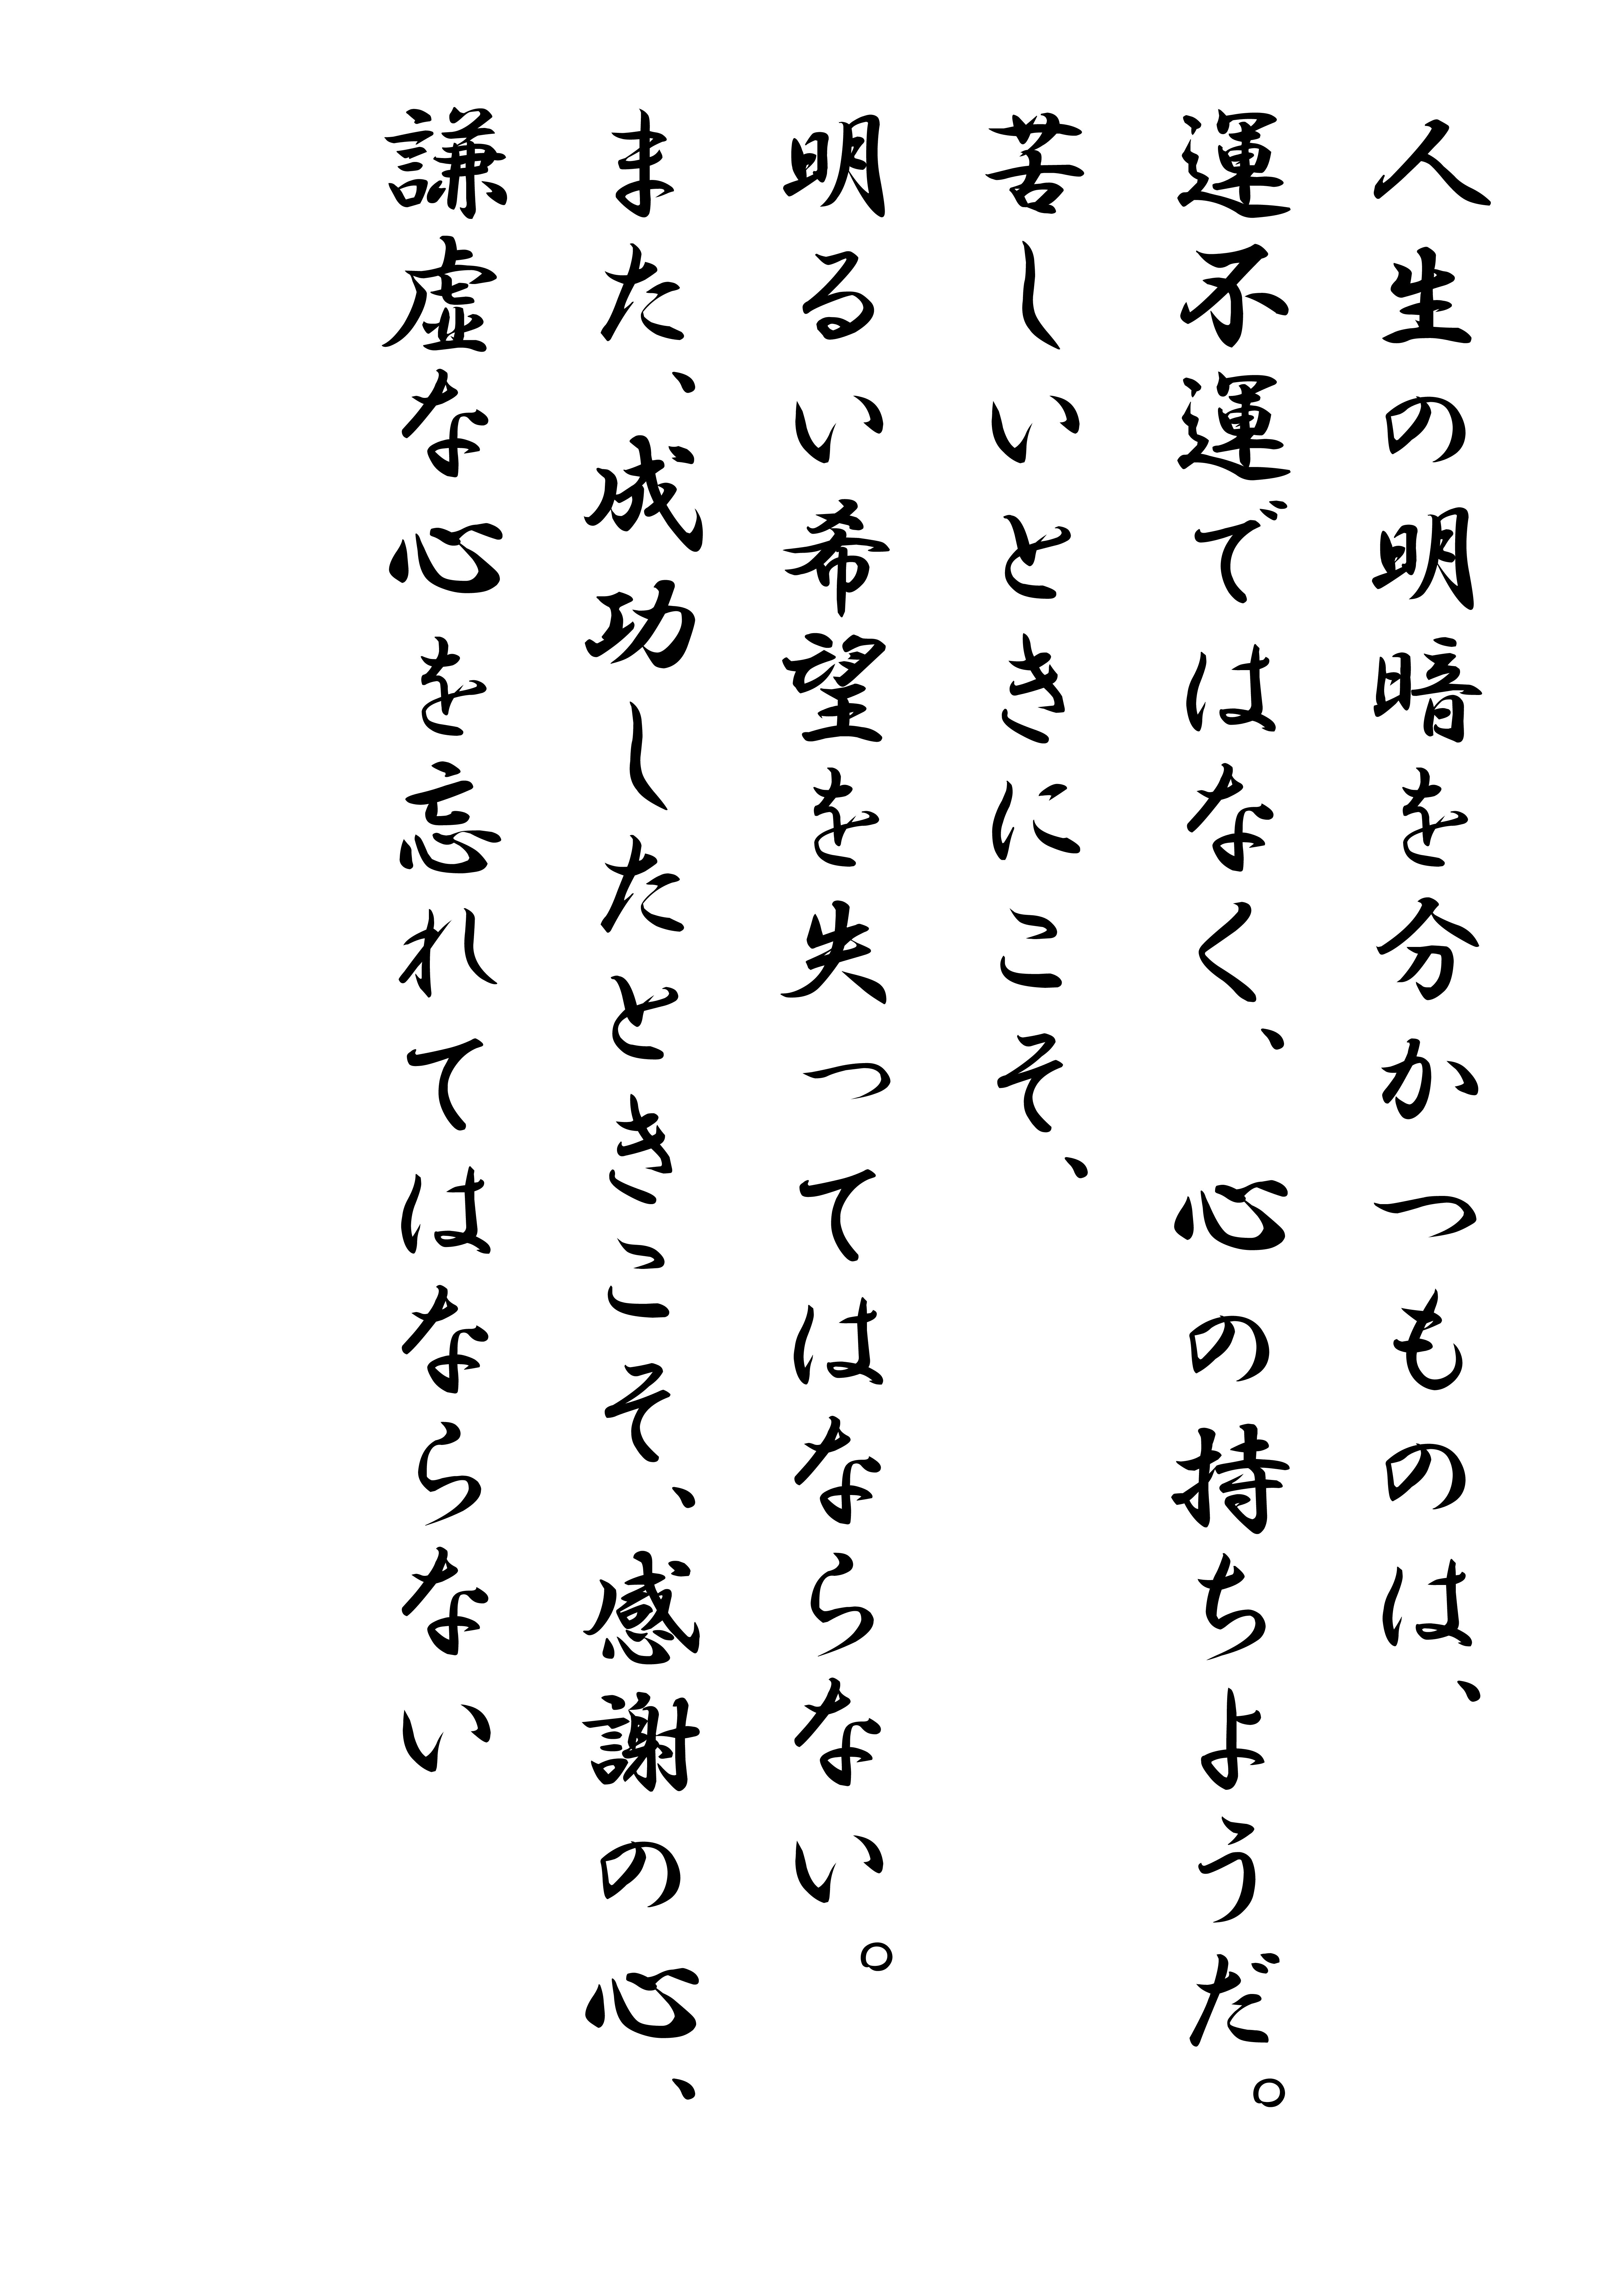 人生の明暗を分かつものは、
運不運ではなく、心の持ちようだ。
苦しいときにこそ、
明るい希望を失つてはならない。
また、成功したときこそ、感謝の心、
謙虚な心を忘れてはならない